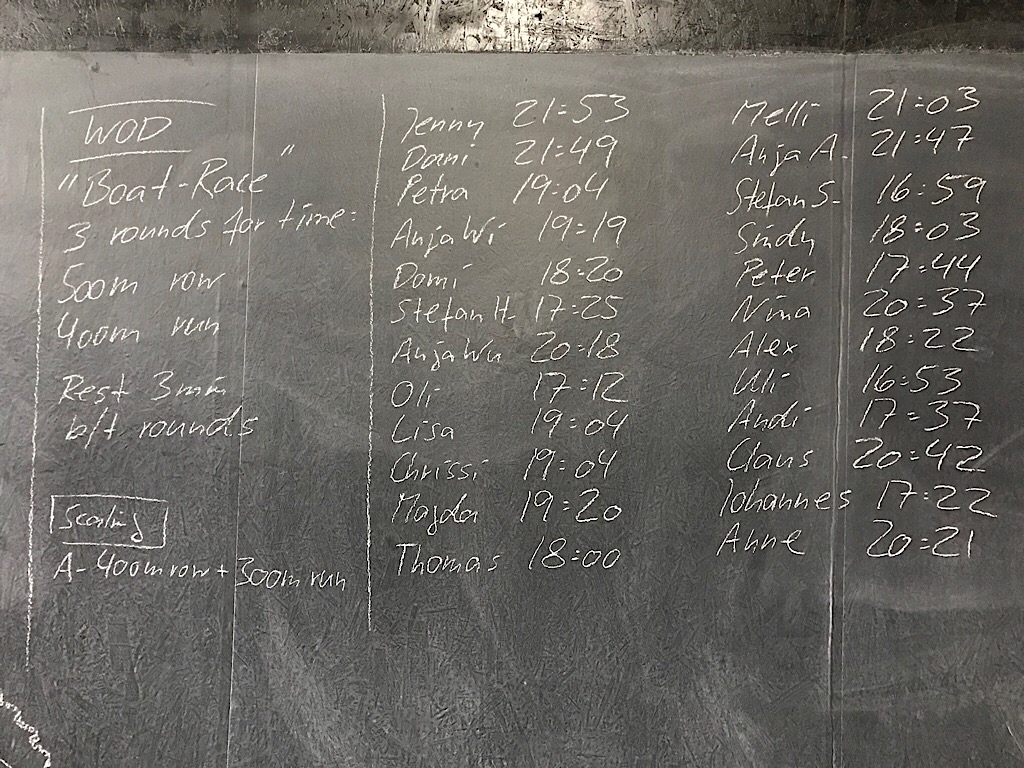 WOD
"Boat-Race"
3 rounds for time:
500m row
400m run
Rest 3min
b/t rounds
Scaling
A- 400m row + 300m run
Jenny 21:53
Dani 21:49
Petra 19:04
Anja Wi 19:19
Domi 18:20
Stefan H. 17:25
Anja Wu 20:18
Oli 17:12
Lisa 19:04
Chrissi 19:04
Magda 19:20
Thomas 18:00
Melli 21:03
Anja A. 21:47
Stefan S. 16:59
Sindy 18:03
Peter 17:44
Nina 20:37
Alex 18:22
Uli 16:53
Andi 17:37
Claus 20:42
Johannes 17:22
Anne 20:21